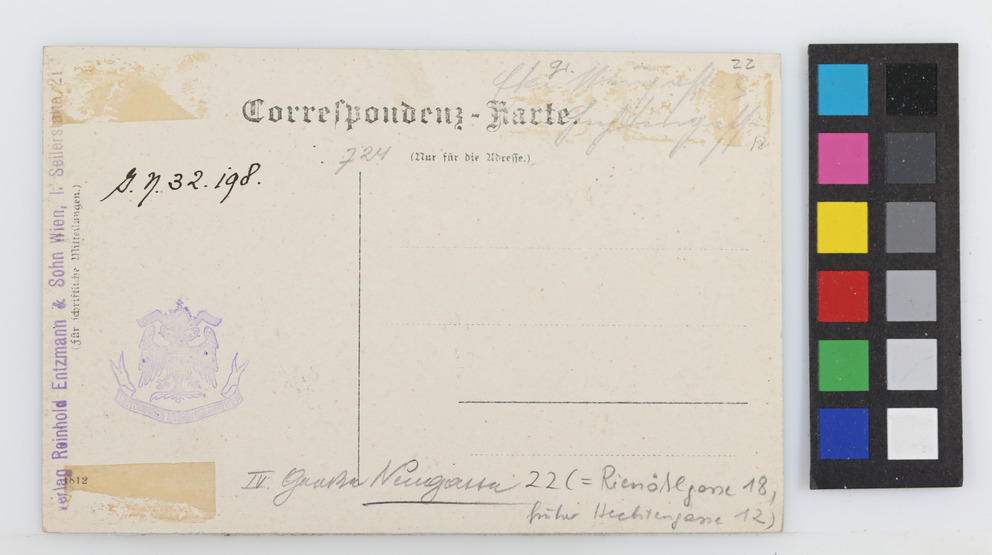 22
Correspondenz-Karte.
724
(Nur für die Adresse.)
I. N. 32.198.
Verlag Reinhold Entzmann & Sohn Wien, I. Seilerstätte 21
(Für schriftliche Mitteilungen.)
IV. Große Neugasse 22 (= Rienößlgasse 18,
früher Hechtengasse 12)